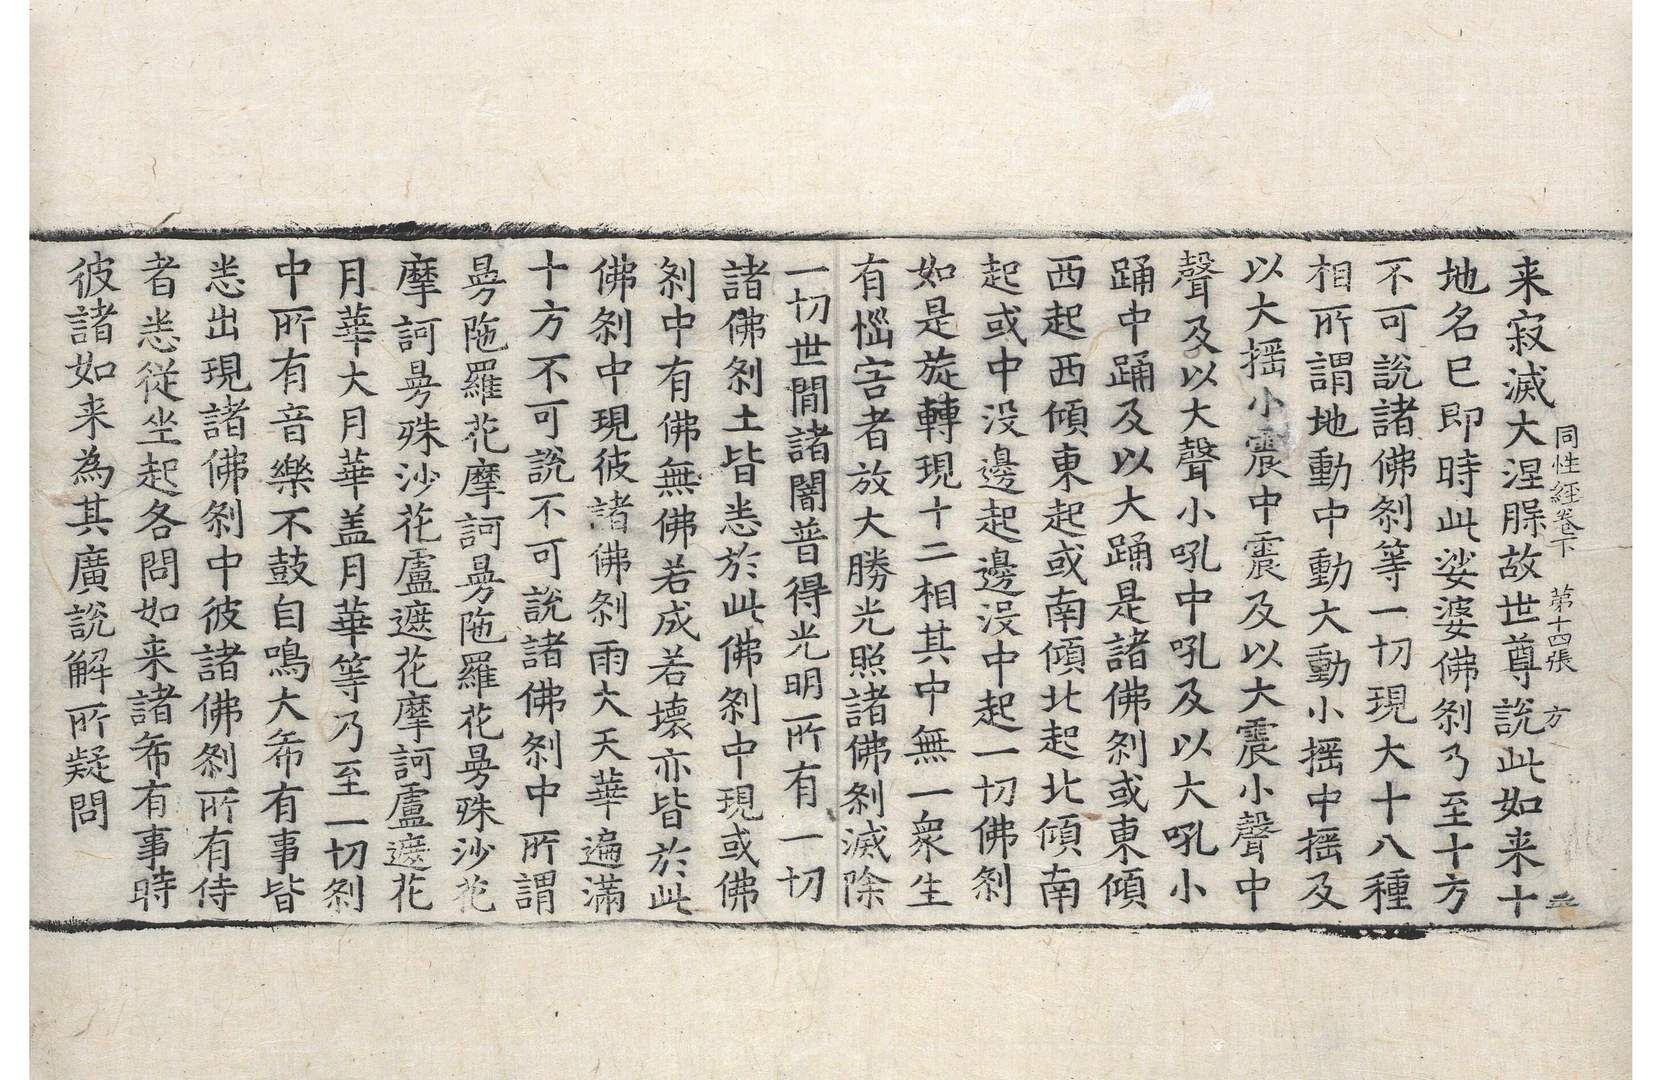 同性經卷下 第十四張 方
来寂滅大涅槃故世尊說此如来十
地名已即時此娑婆佛刹乃至十方
不可說諸佛刹等一切現大十八種
相所謂地動中動大動小揺中揺及
以大揺小震中震及以大震小聲中
聲及以大聲小吼中吼及以大吼小
踊中踊及以大踊是諸佛刹或東傾
西起西傾東起或南傾北起北傾南
起或中没邊起邊没中起一切佛刹
如是旋轉現十二相其中無一衆生
有惱害者放大勝光照諸佛刹滅除
一切世間諸闇普得光明所有一切
諸佛刹土皆悉於此佛刹中現或佛
刹中有佛無佛若成若壞亦皆於此
佛刹中現彼諸佛刹雨大天華遍滿
十方不可說不可說諸佛刹中所謂
曼陁羅花摩訶曼陁羅花曼殊沙花
摩訶曼殊沙花盧遮花摩訶盧遮花
月華大月華盖月華等乃至一切刹
中所有音樂不鼓自鳴大希有事皆
悉出現諸佛刹中彼諸佛刹所有侍
者悉從坐起各問如来諸希有事時
彼諸如来為其廣說解所疑問